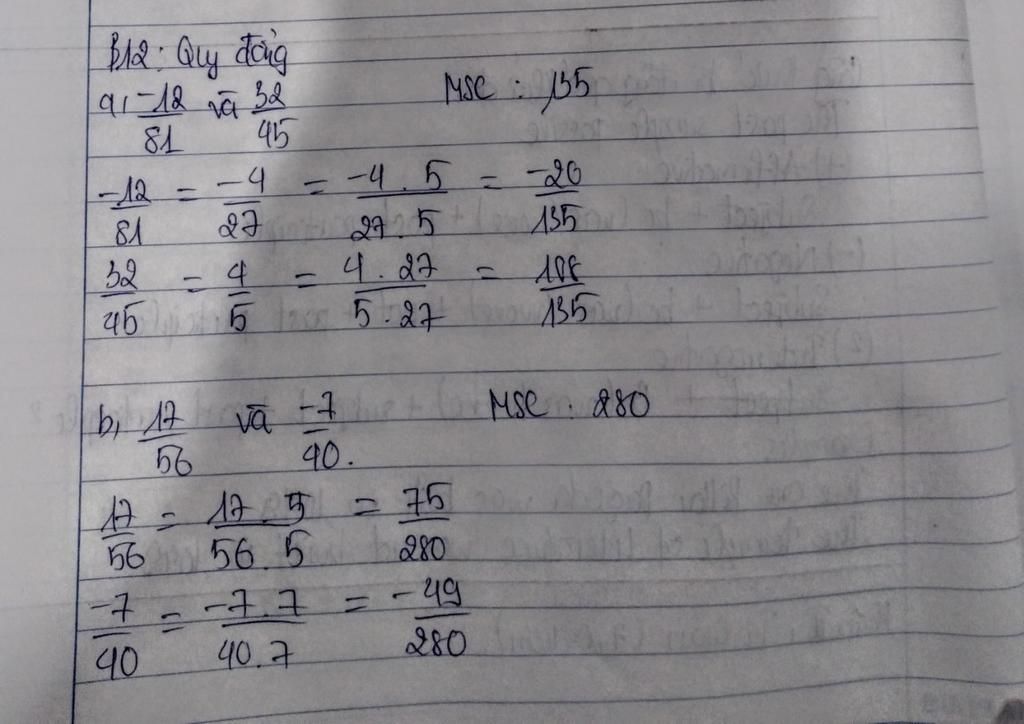 B12: Quy đồng
a, -12/81 và 32/45 MSC : 135
-12/81 = -4/27 = -4.5/27.5 = -20/135
32/45 = 4/5 = 4.27/5.27 = 108/135
b, 17/56 và -7/40. MSC : 280
17/56 = 17.5/56.5 = 75/280
-7/40 = -7.7/40.7 = -49/280